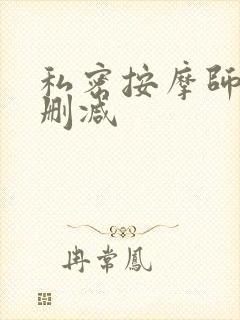 私密按摩師
删减
冉常鳳